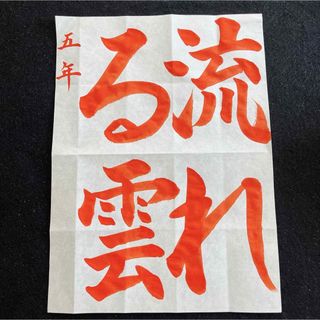 流れ
る雲
五年